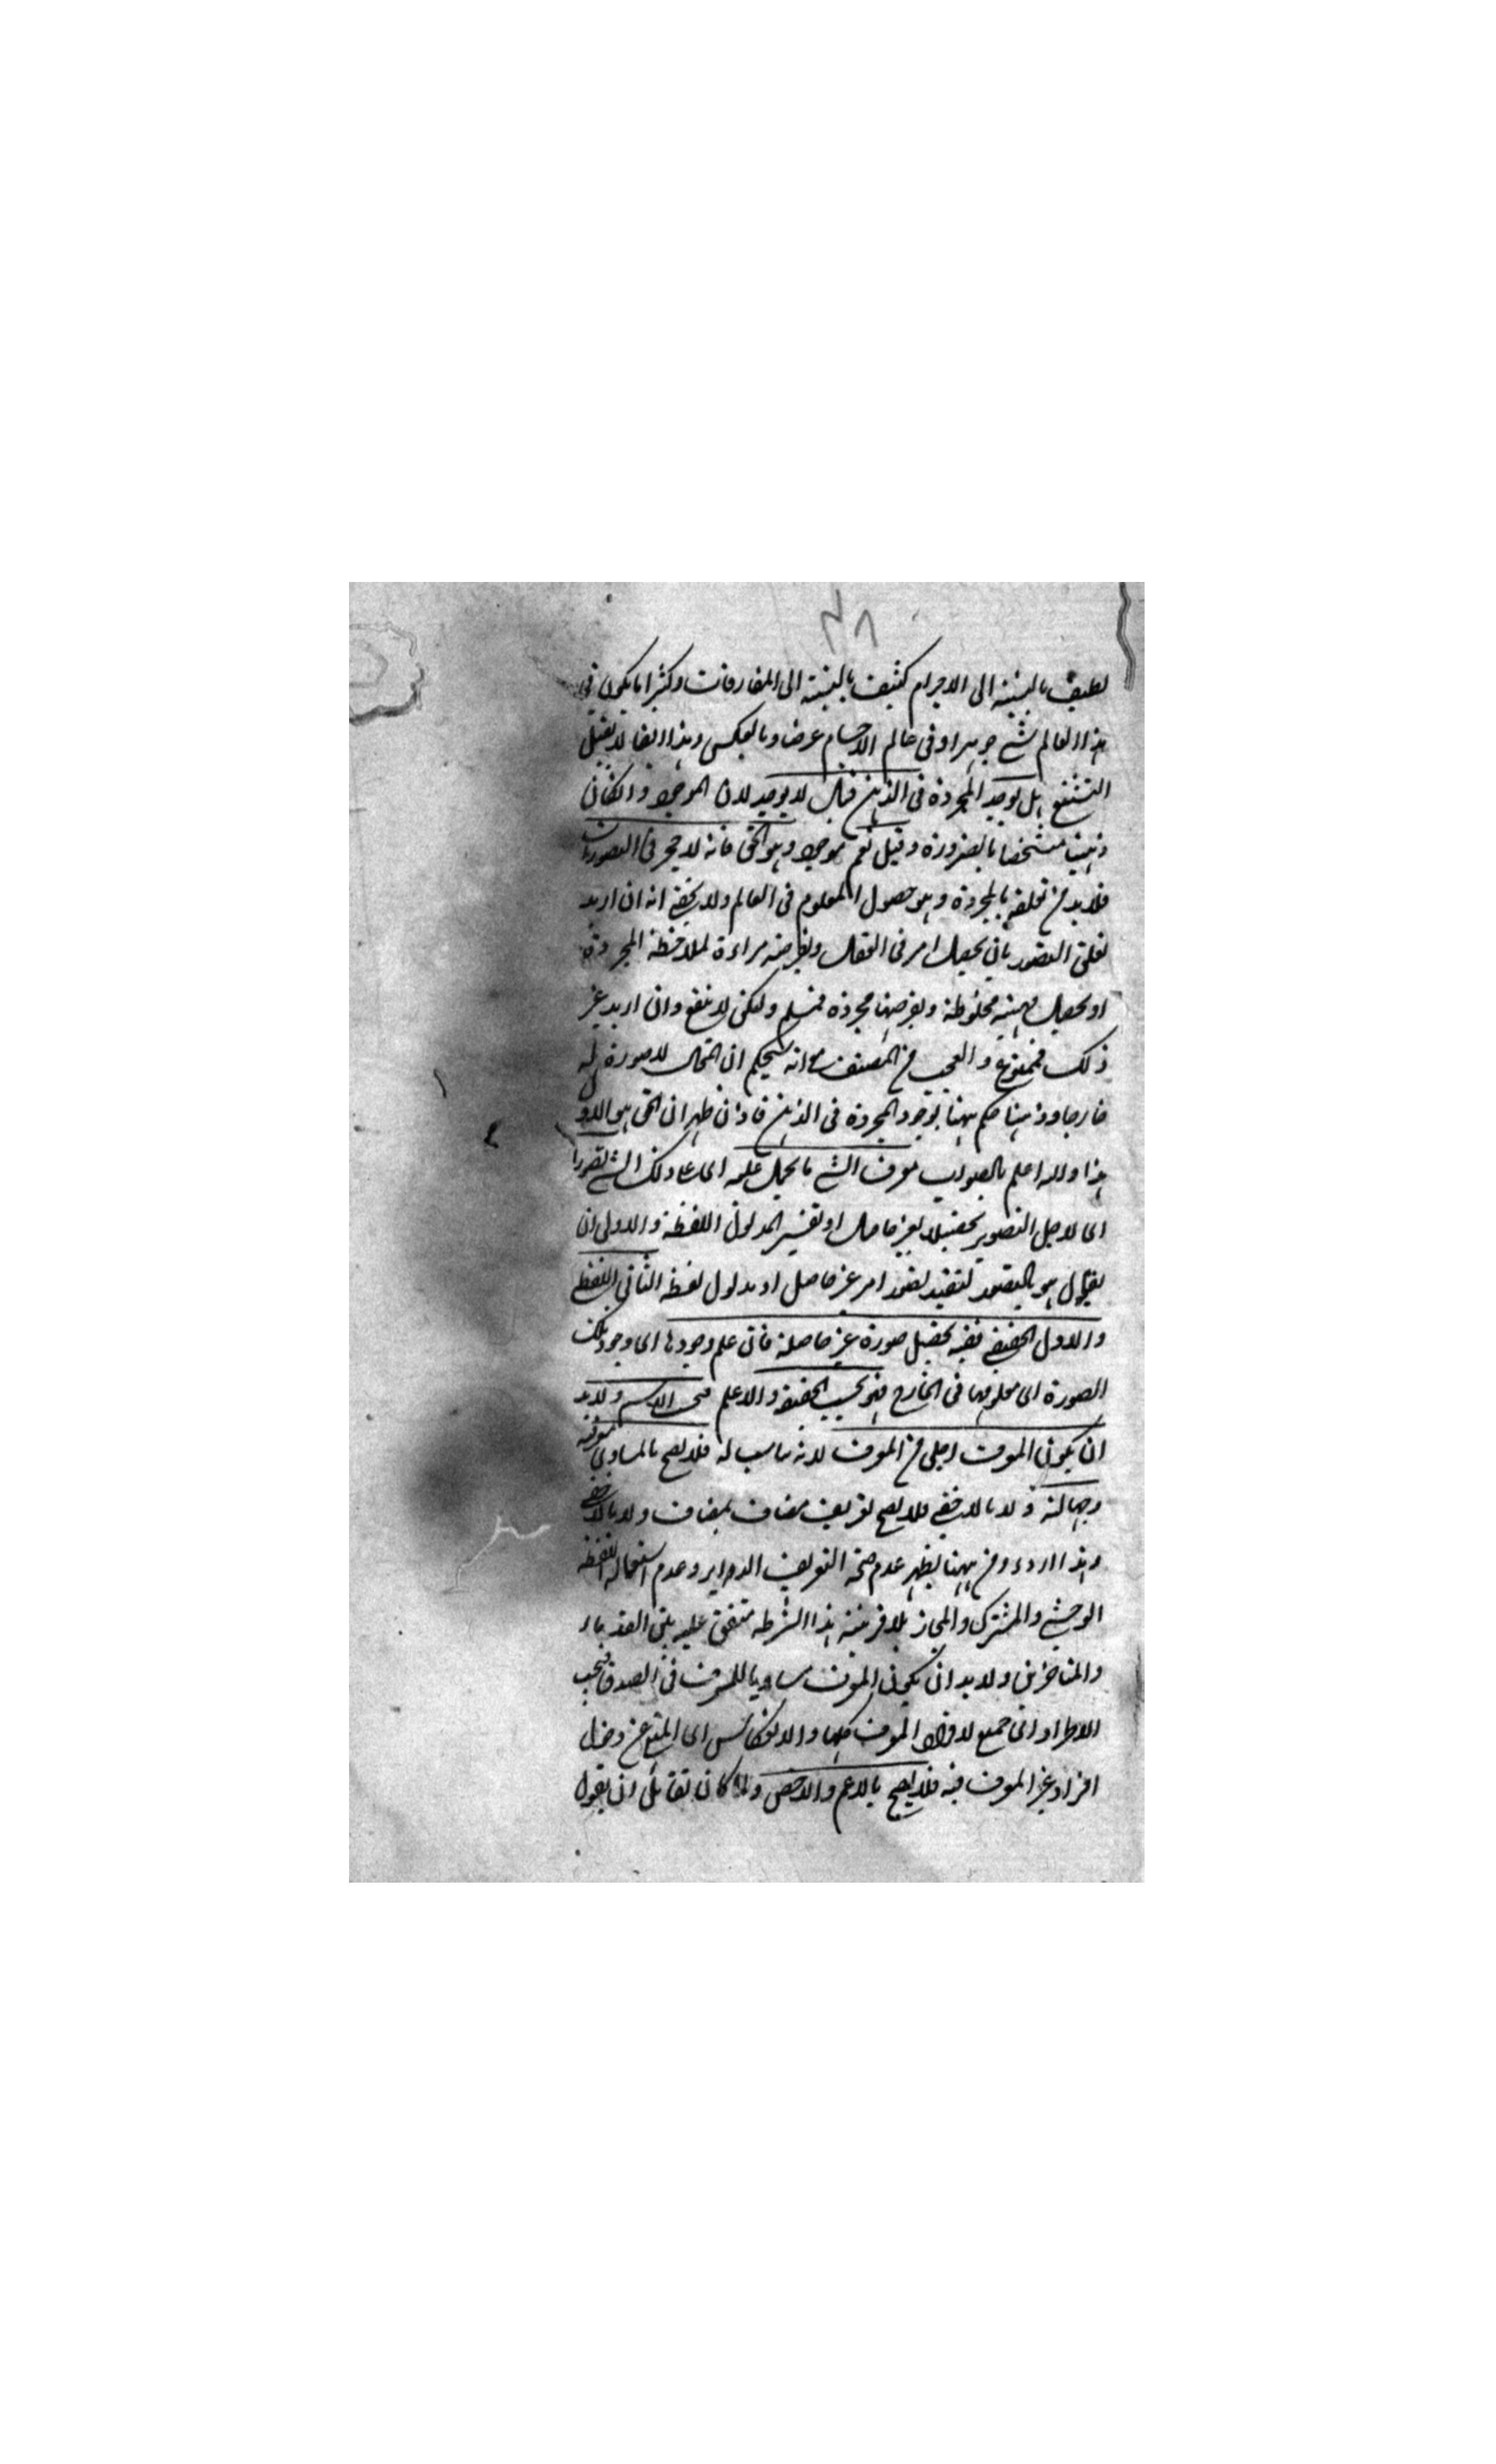 ٣٨
لطيف بالنسبة الى الاجرام كثيف بالنسبة الى المفارقات وكثيرا ما يكون في
هذا العالم شئ جوهرا وفى عالم الاجسام عرضا وبالعكس وهذا ايضا لا يقبل
التشنيع هل توجد المجردة فى الذهن قيل لا يوجد لان الموجود والكائن
ذهنيا متشخصا بالضرورة وقيل نعم موجود وهو الحق فانه لا حجر فى التصورات
فلابد من تعلقه بالمجردة وهو حصول المعلوم فى العالم ولا يخفى انه ان اريد
تعلق التصور بان يحصل امر فى العقل ويفرضه مراءة لملاحظة المجردة
او يحصل مهية مخلوطة ويفرضها مجردة فمسلم ولكن لا ينفع وان اريد غير
ذلك فممنوع والعجب من المصنف مع انه سيحكم ان المحال لا صورة له
خارجا وذهنا حكم ههنا بوجود المجردة فى الذهن فاذن ظهر ان الحق هو الاو
هذا والله اعلم بالصواب معرف الشئ ما يحمل عليه اى على ذلك الشئ تصويرا
اى لاجل التصوير تحصيلا لغير حاصل او تفسير المدلول اللفظ والاولى ان
يقال هو بالتصور لتفيد تصور امر غير حاصل او مدلول لفظ الثانى اللفظى
والاول الحقيقى ففيه تحصيل صورة غير حاصلة فان علم وجودها اى وجود تلك
الصورة اى معلومها فى الخارج فهو بحسب الحقيقة والا علم فبحسب الاسم ولابد
ان يكون المعرف اجلى من المعرف لانه كاسب له فلا يصح بالمساوى معرفة
وجهالة ولا بالاخفى فلا يصح تعريف مضاف بمضاف ولا بالاخفى
وهذا اردء ومن ههنا يظهر عدم صحة التعريف الدوايرى وعدم استعمال اللفظ
الوحشى والمشترك والمجاز بلا قرينة هذا الشرط متفق عليه بين القدماء
والمتاخرين ولابد ان يكون المعرف مساويا للمعرف فى الصدق فيجب
الاطراد اى جميع لافراد المعرف كلها والانعكاس اى المنع عن دخول
افراد غير المعرف فيه فلا يصح بالاعم والاخص ولما كان لقائل ان يقول